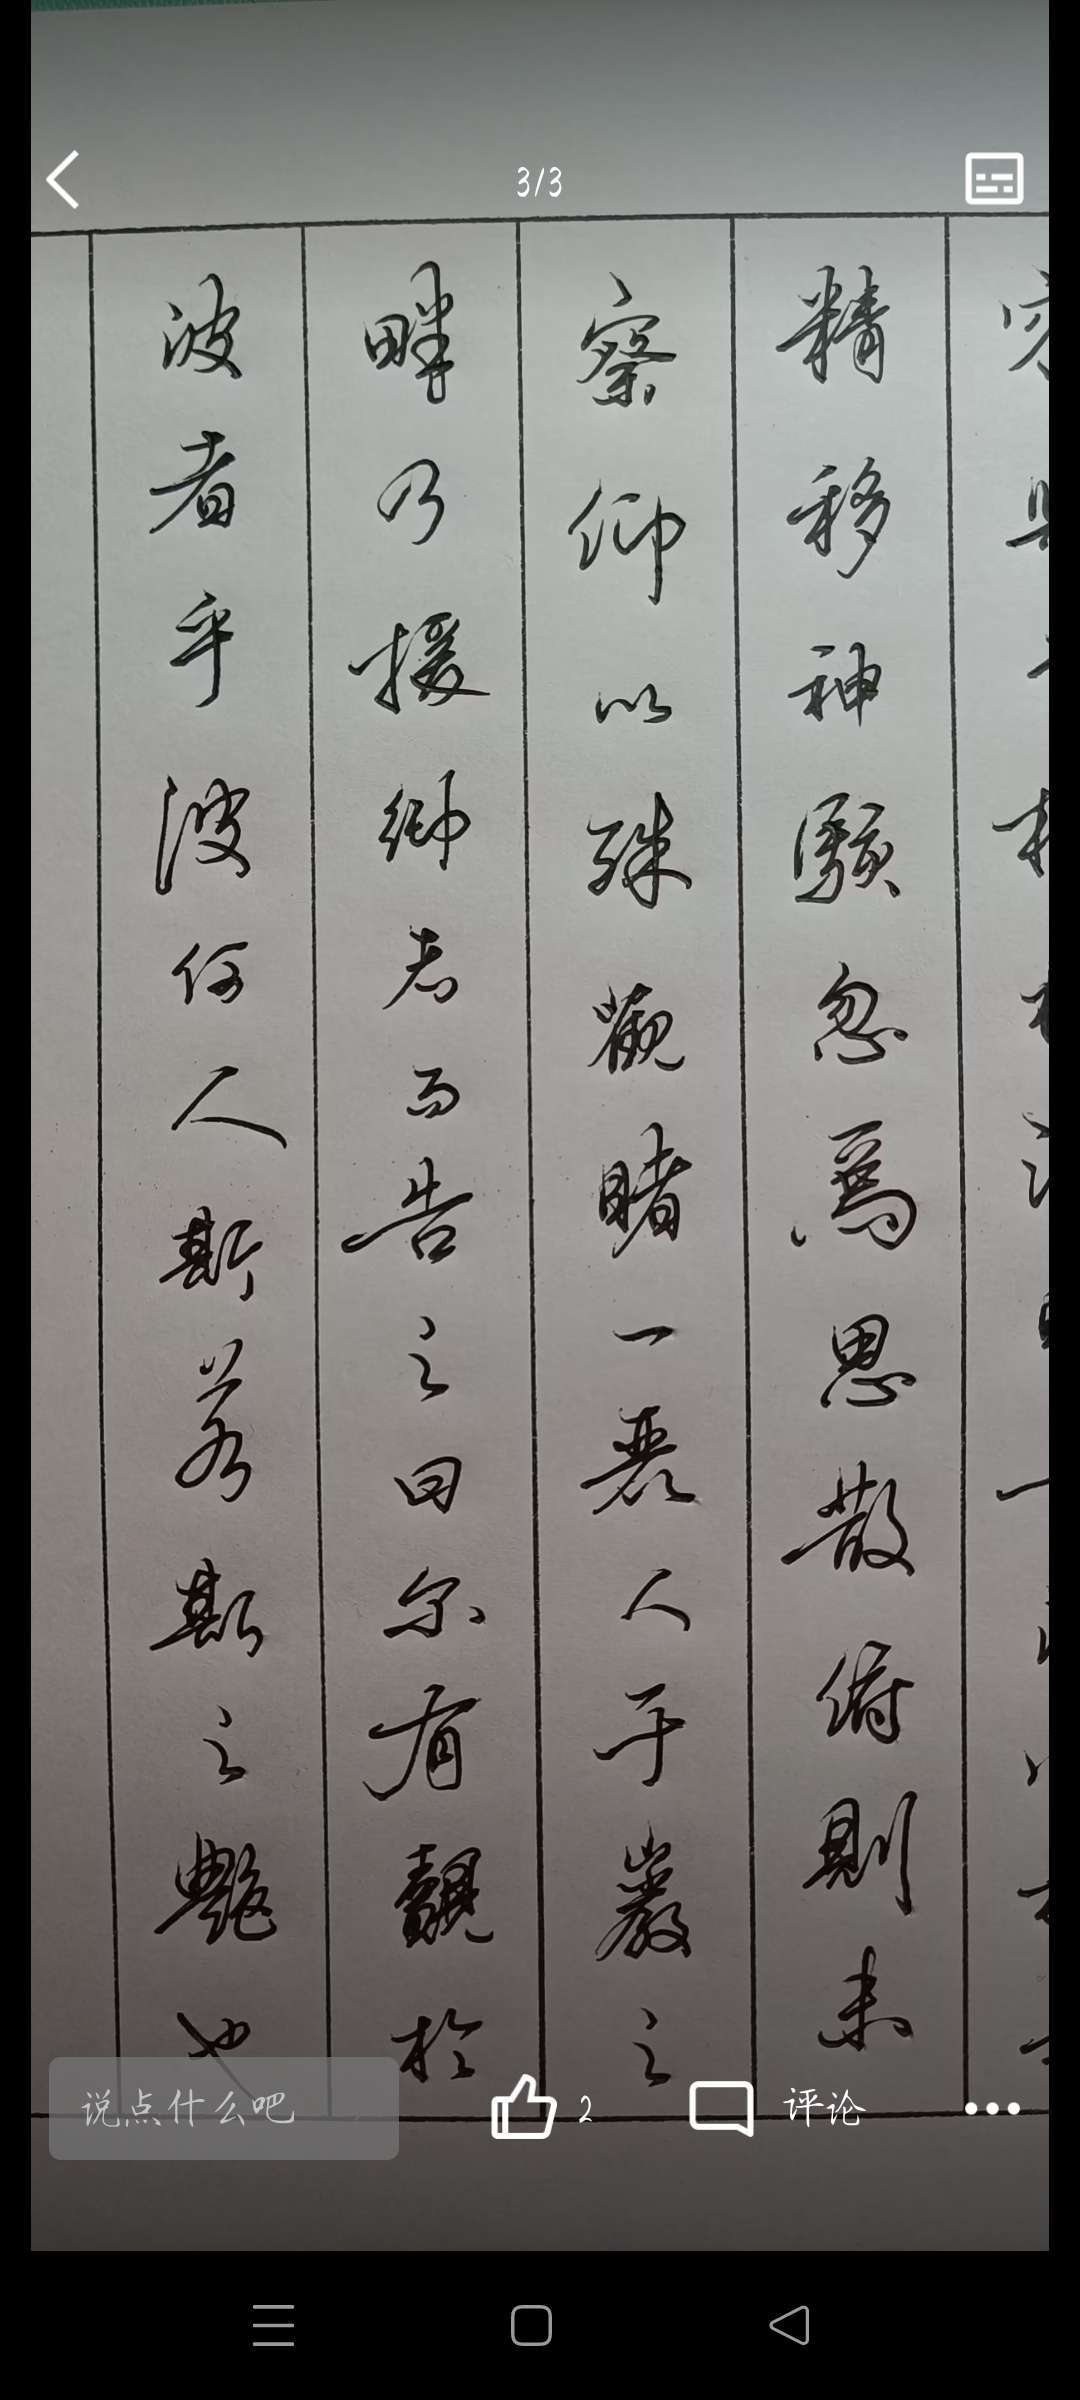 3/3
精移神駭忽焉思散俯則未
察仰以殊觀睹一麗人于巖之
畔乃援御者而告之曰尔有觀於
波者乎波何人斯若斯之艷也
说点什么吧
2
评论